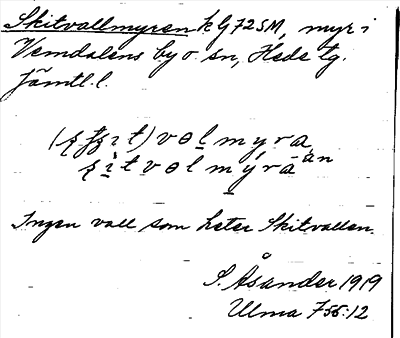 Skitvallmyren k G 72 SM, myr i
Vemdalens by o. sn, Hede tg.
Jämtl. l.
Ingen vall som heter Skitvallen.
S. Åsander 1919
Ulma 756:12